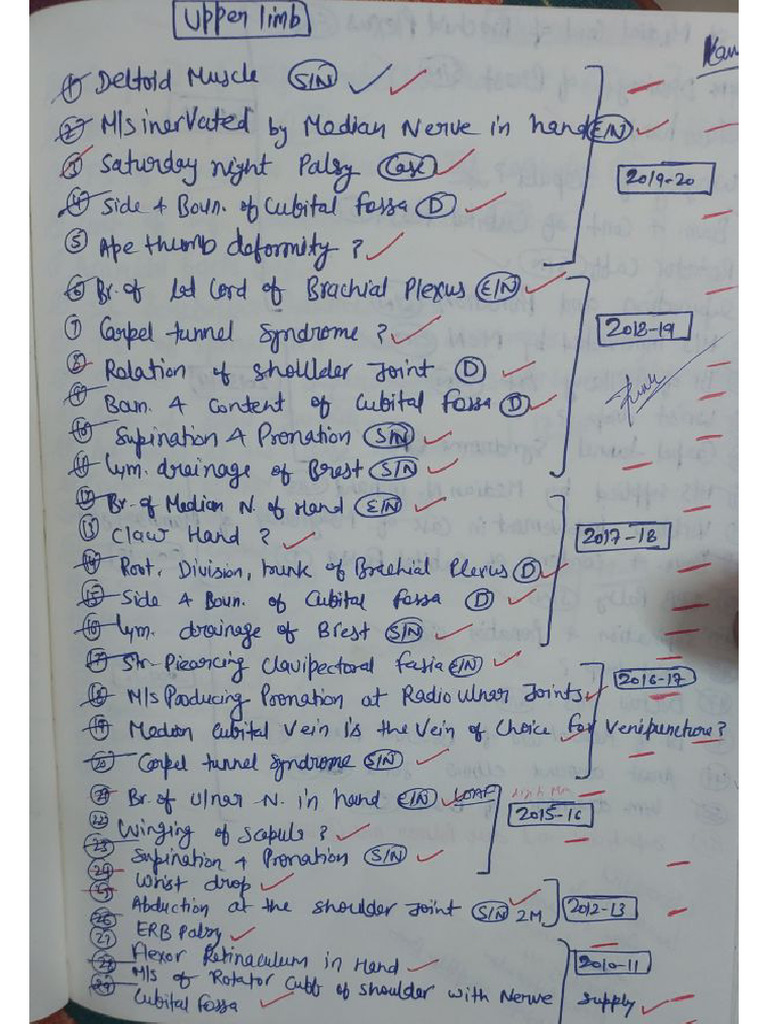 Upper limb
① Deltoid Muscle S/N
② M/s inervated by Median Nerve in hand E/N
③ Saturday night Palsy Case
2019-20
④ Side & Boun. of Cubital Fossa D
⑤ Ape thumb deformity ?
⑥ Br. of Lat Cord of Brachial Plexus E/N
⑦ Carpel tunnel Syndrome ?
2018-19
⑧ Rotation of Shoulder Joint D
⑨ Boun. & Content of Cubital Fossa D
⑩ Supination & Pronation S/N
⑪ Lym. drainage of Brest S/N
⑫ Br. of Median N. of Hand E/N
⑬ Claw Hand ?
2017-18
⑭ Root, Division, trunk of Brachial Plexus D
⑮ Side & Boun. of Cubital fassa D
⑯ Lym. drainage of Brest S/N
⑰ Str. Piearcing Clavipectoral fasia E/N
2016-17
⑱ M/s Producing Pronation at Radio Ulner Joints
⑲ Median Cubital Vein is the Vein of Choice for Venipuncture ?
⑳ Carpel tunnel Syndrome S/N
㉑ Br. of Ulner N. in hand E/N LOAF
2015-16
㉒ Winging of Scapula ?
㉓ Supination & Pronation S/N
㉔ Wrist drop
㉕ Abduction at the Shoulder Joint S/N 2M
2012-13
㉖ ERB Palsy
㉗ Flexor Retinaculum in Hand
2010-11
㉘ M/s of Rotator Cuff of Shoulder with Nerve Supply
㉙ Cubital Fossa